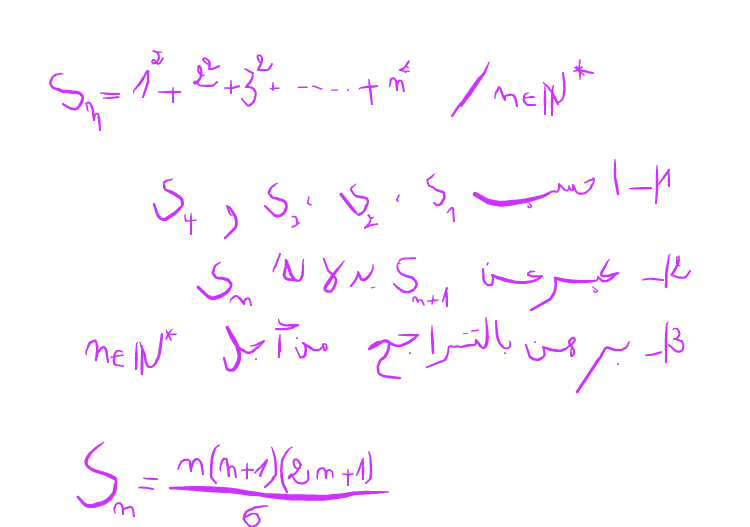 Sₙ = 1² + 2² + 3² + ...... + n² / n ∈ ℕ*
1- احسب S₁ ، S₂ ، S₃ و S₄
2- عبر عن Sₙ₊₁ بدلالة Sₙ
3- برهن بالتراجع من أجل n ∈ ℕ*
Sₙ = n(n+1)(2n+1) / 6